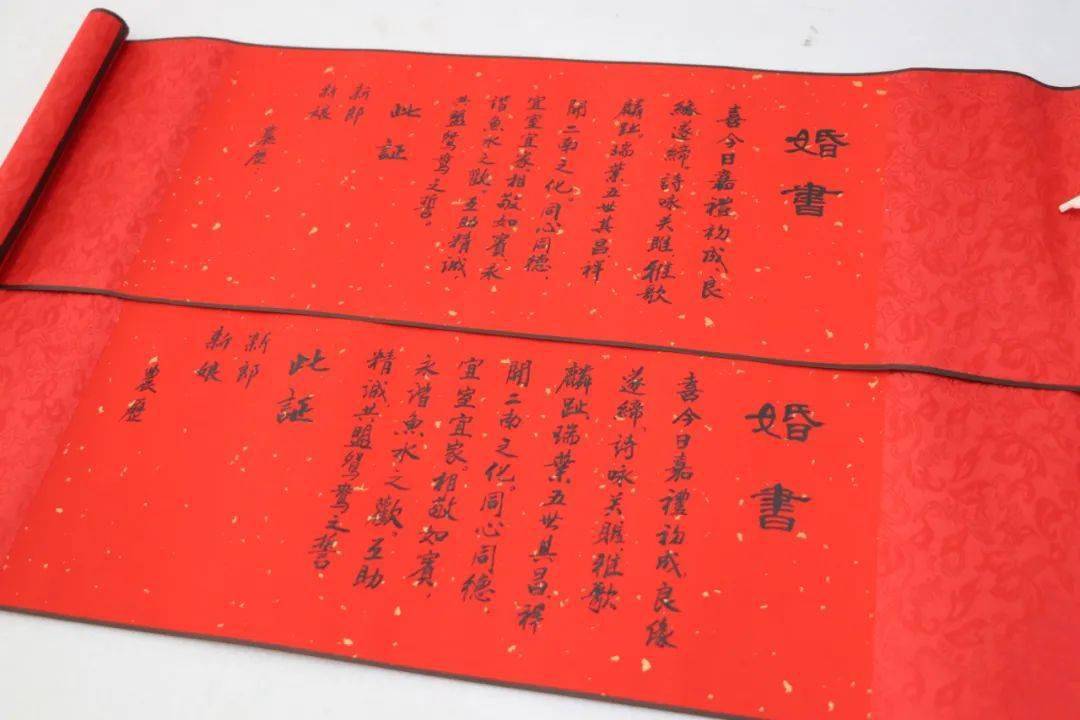 婚書
喜今日嘉禮初成良
緣遂締,詩咏关雎,雅歌
麟趾。瑞葉五世其昌,祥
開二南之化。同心同德,
宜室宜家。相敬如賓,永
諧魚水之歡。互助精誠,
共盟鴛鴦之誓。
此証
新郎
新娘
農歷
婚書
喜今日嘉禮初成,良緣
遂締,詩咏关雎,雅歌
麟趾。瑞葉五世其昌,祥
開二南之化。同心同德,
宜室宜家。相敬如賓,
永諧魚水之歡。互助
精誠,共盟鴛鴦之誓
此証
新郎
新娘
農歷